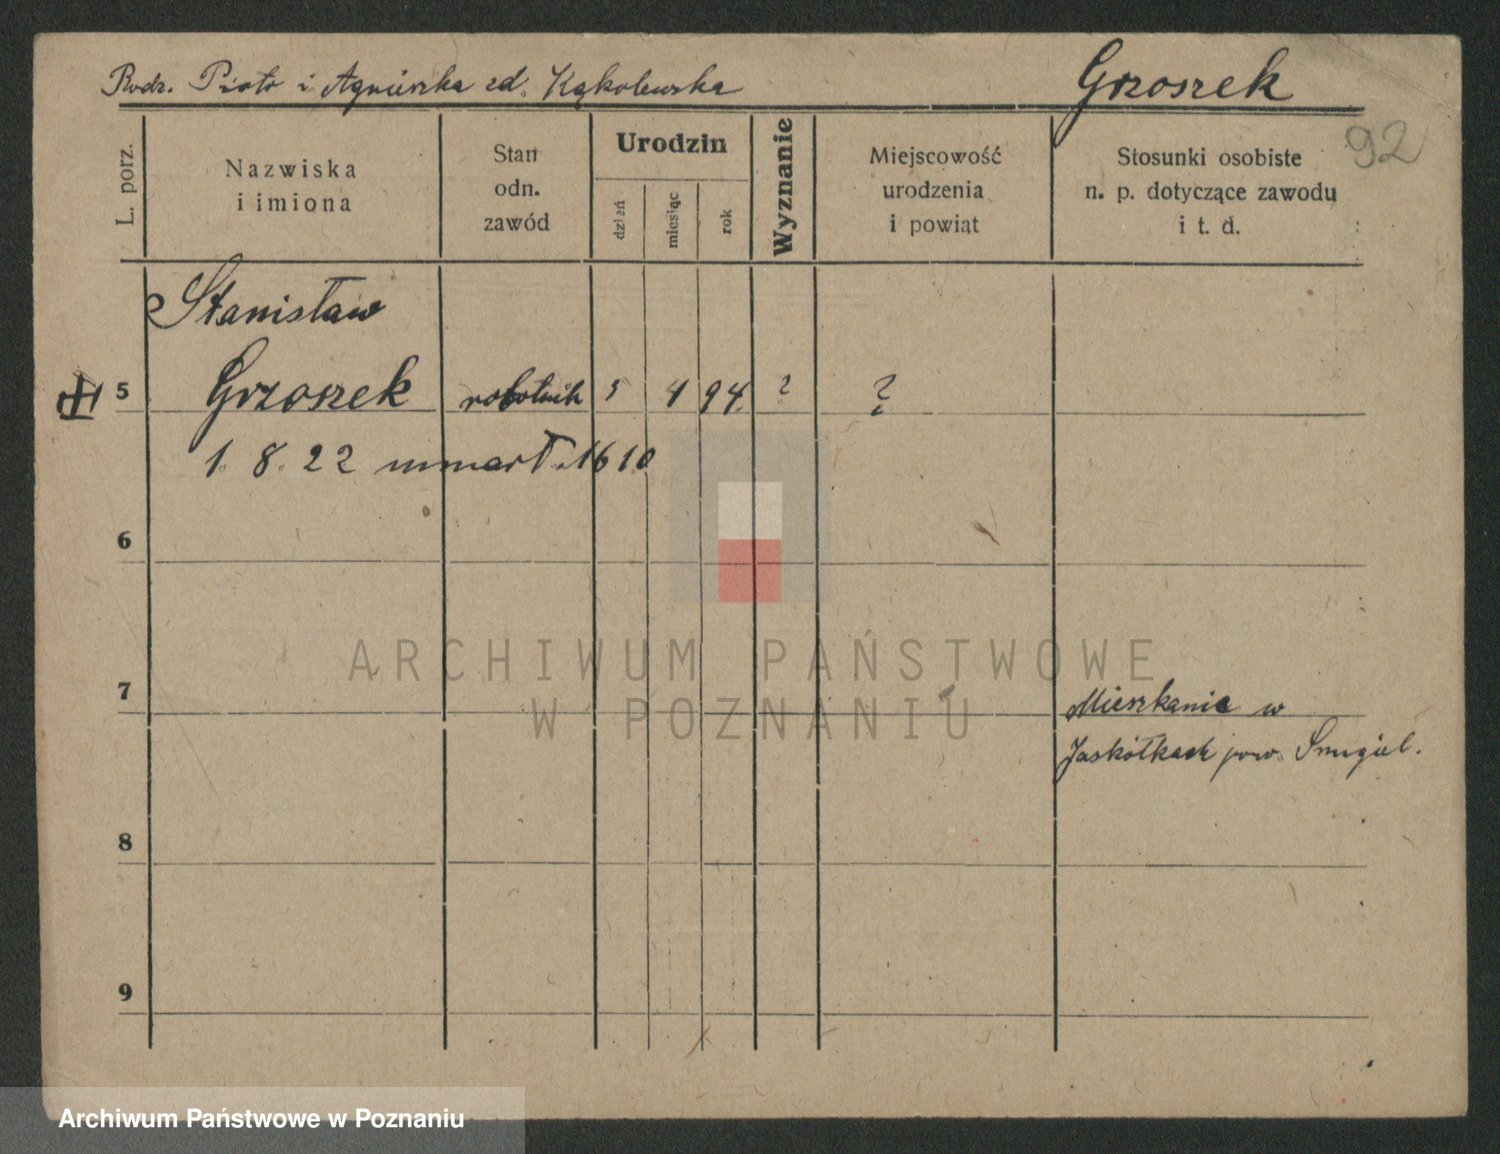 Rodz. Piotr i Agnieszka zd. Kąkolewska
Grzoszek
92
L. porz.
Nazwiska
i imiona
Stan
odn.
zawód
Urodzin
dzień
miesiąc
rok
Wyznanie
Miejscowość
urodzenia
i powiat
Stosunki osobiste
n. p. dotyczące zawodu
i t. d.
Stanisław
5 Grzoszek robotnik 5 4 94. ? ?
1. 8. 22 umarł. 1610
6
7
Mieszkanie w
Jaskółkach pow. Smigiel.
8
9
ARCHIWUM PAŃSTWOWE
W POZNANIU
Archiwum Państwowe w Poznaniu